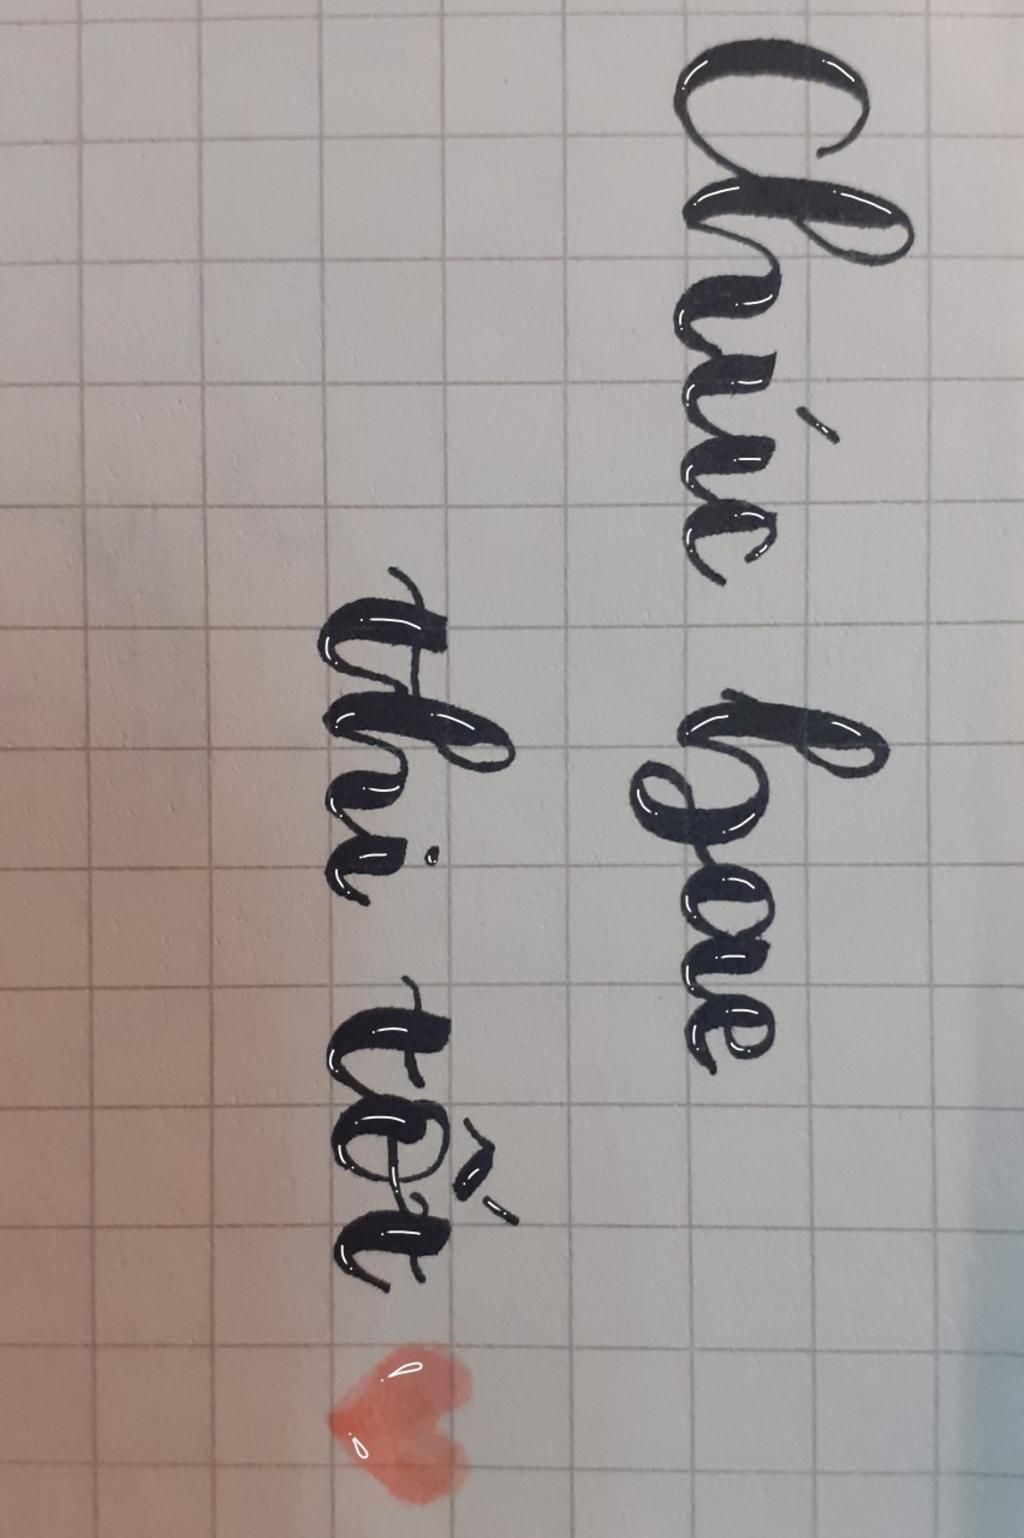 Chúc bae
thi tốt